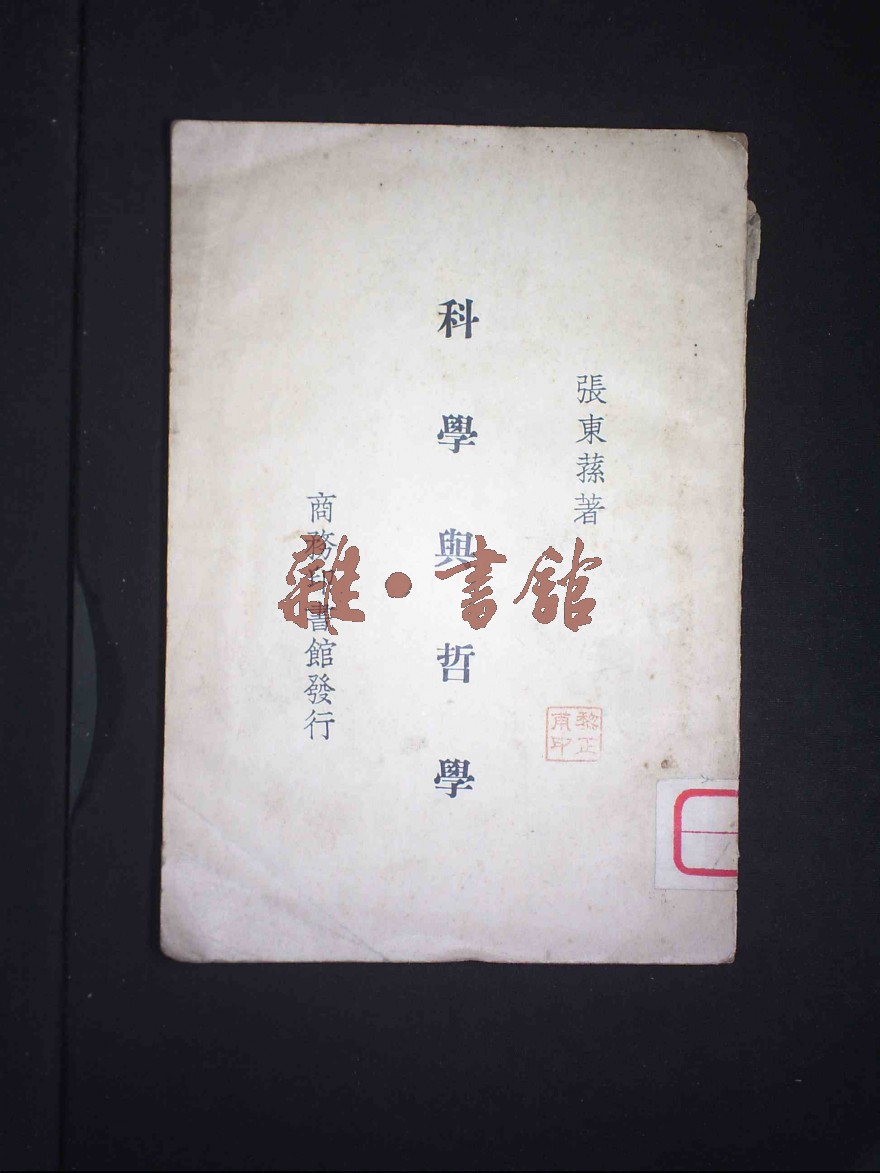 張東蓀著
科學與哲學
商務印書館發行
雜·書館
黎正
甫印